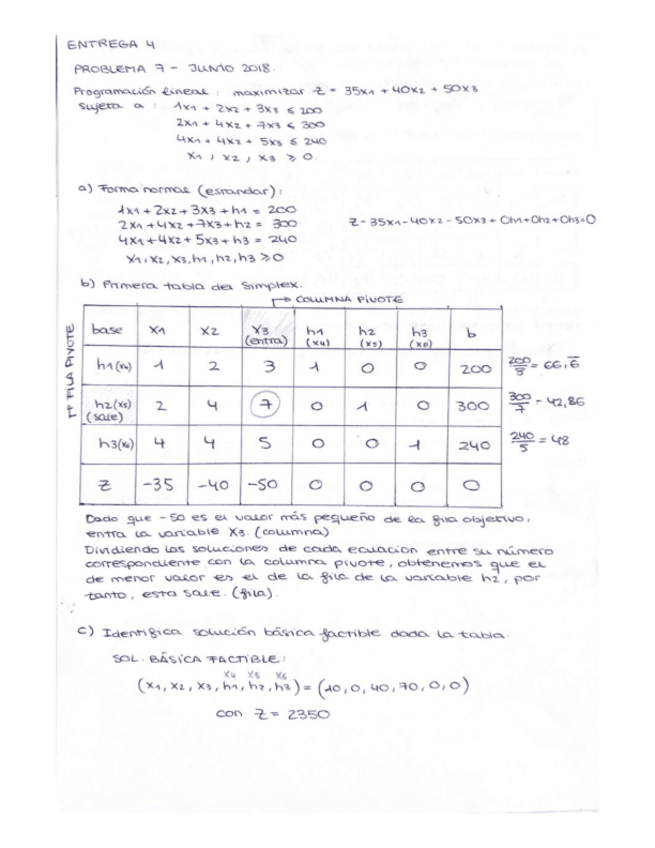 ENTREGA 4
PROBLEMA 7 - JUNIO 2018.
Programación lineal: maximizar Z = 35x1 + 40x2 + 50x3
sujeta a: 1x1 + 2x2 + 3x3 ≤ 200
2x1 + 4x2 + 7x3 ≤ 300
4x1 + 4x2 + 5x3 ≤ 240
x1, x2, x3 ≥ 0.
a) Forma normal (estandar):
1x1 + 2x2 + 3x3 + h1 = 200
2x1 + 4x2 + 7x3 + h2 = 300 Z - 35x1 - 40x2 - 50x3 + 0h1 + 0h2 + 0h3 = 0
4x1 + 4x2 + 5x3 + h3 = 240
x1, x2, x3, h1, h2, h3 ≥ 0
b) Primera tabla del Simplex.
→ COLUMNA PIVOTE
base x1 x2 x3 (entra) h1 (x4) h2 (x5) h3 (x6) b
h1(x4) 1 2 3 1 0 0 200 200/3 = 66,6̄
h2(x5) (sale) 2 4 7 0 1 0 300 300/7 = 42,86
h3(x6) 4 4 5 0 0 1 240 240/5 = 48
Z -35 -40 -50 0 0 0 0
FILA PIVOTE
Dado que -50 es el valor más pequeño de la fila objetivo,
entra la variable x3. (columna)
Dividiendo las soluciones de cada ecuacion entre su número
correspondiente con la columna pivote, obtenemos que el
de menor valor es el de la fila de la variable h2, por
tanto, esta sale. (fila).
c) Identifica solución básica factible dada la tabla.
SOL. BÁSICA FACTIBLE:
x4 x5 x6
(x1, x2, x3, h1, h2, h3) = (10, 0, 40, 70, 0, 0)
con Z = 2350